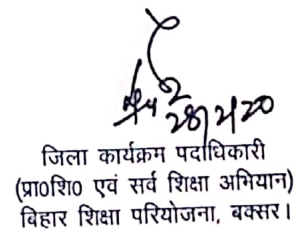 28/2/20
जिला कार्यक्रम पदाधिकारी
(प्रा०शि० एवं सर्व शिक्षा अभियान)
बिहार शिक्षा परियोजना, बक्सर।